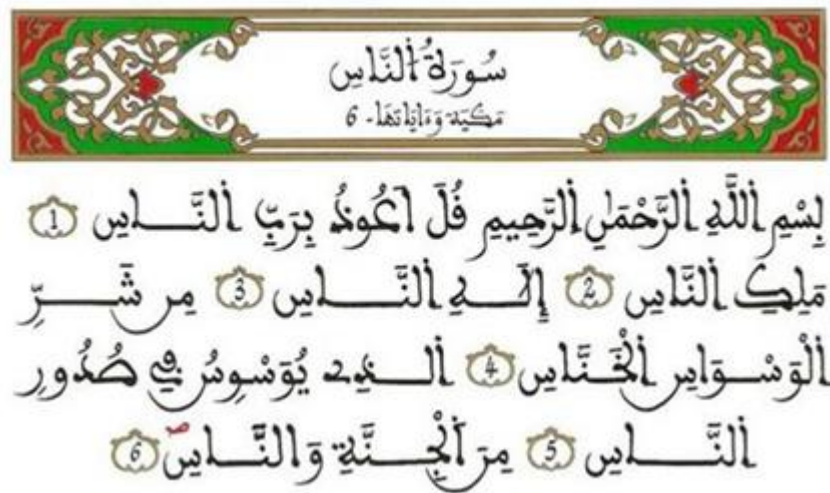 سُورَةُ اُ۬لنَّاسِ
مَكِّيَة وَءَايَاتُهَا - 6
بِسْمِ اِ۬للَّهِ اِ۬لرَّحْمَٰنِ اِ۬لرَّحِيمِ قُلَ اَعُوذُ بِرَبِّ اِ۬لنَّاسِ 1
مَلِكِ اِ۬لنَّاسِ 2 إِلَٰهِ اِ۬لنَّاسِ 3 مِن شَرِّ
اِ۬لْوَسْوَاسِ اِ۬لْخَنَّاسِ 4 اِ۬لذِے يُوَسْوِسُ فِے صُدُورِ
اِ۬لنَّاسِ 5 مِنَ اَ۬لْجِنَّةِ وَالنَّاسِۖ 6